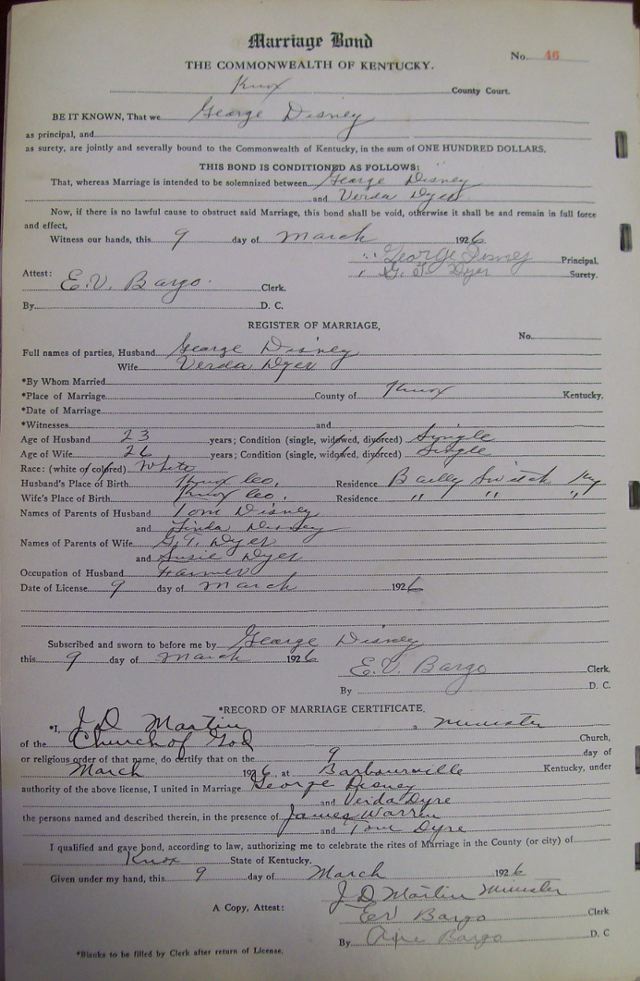 Marriage Bond
No. 46
THE COMMONWEALTH OF KENTUCKY.
Knox County Court.
BE IT KNOWN, That we George Disney
as principal, and
as surety, are jointly and severally bound to the Commonwealth of Kentucky, in the sum of ONE HUNDRED DOLLARS.
THIS BOND IS CONDITIONED AS FOLLOWS:
That, whereas Marriage is intended to be solemnized between George Disney
and Verda Dyer
Now, if there is no lawful cause to obstruct said Marriage, this bond shall be void, otherwise it shall be and remain in full force
and effect,
Witness our hands, this 9 day of March 1926
George Disney Principal,
Attest: G. T. Dyer Surety.
E.V. Bargo. Clerk.
By D. C.
REGISTER OF MARRIAGE,
No.
Full names of parties, Husband George Disney
Wife Verda Dyer
*By Whom Married
*Place of Marriage County of Knox Kentucky.
*Date of Marriage
*Witnesses and
Age of Husband 23 years; Condition (single, widowed, divorced) Single
Age of Wife 26 years; Condition (single, widowed, divorced) Single
Race: (white or colored) White
Husband's Place of Birth Knox Co. Residence Bailey Switch Ky
Wife's Place of Birth Knox Co. Residence " " "
Names of Parents of Husband Tom Disney
and Linda Disney
Names of Parents of Wife G.T. Dyer
and Susie Dyer
Occupation of Husband Farmer
Date of License 9 day of March 1926
Subscribed and sworn to before me by George Disney
this 9 day of March 1926 E.V. Bargo Clerk.
By D. C.
*RECORD OF MARRIAGE CERTIFICATE.
*I, J D Martin a minister
of the Church of God Church,
or religious order of that name, do certify that on the 9 day of
March 1926, at Barbourville Kentucky, under
authority of the above license, I united in Marriage George Disney
and Verda Dyre
the persons named and described therein, in the presence of James Warren
and Tom Dyre
I qualified and gave bond, according to law, authorizing me to celebrate the rites of Marriage in the County (or city) of
Knox State of Kentucky.
Given under my hand, this 9 day of March 1926
J D Martin Minister
A Copy, Attest: EV Bargo Clerk
By Bargo D. C
*Blanks to be filled by Clerk after return of License.